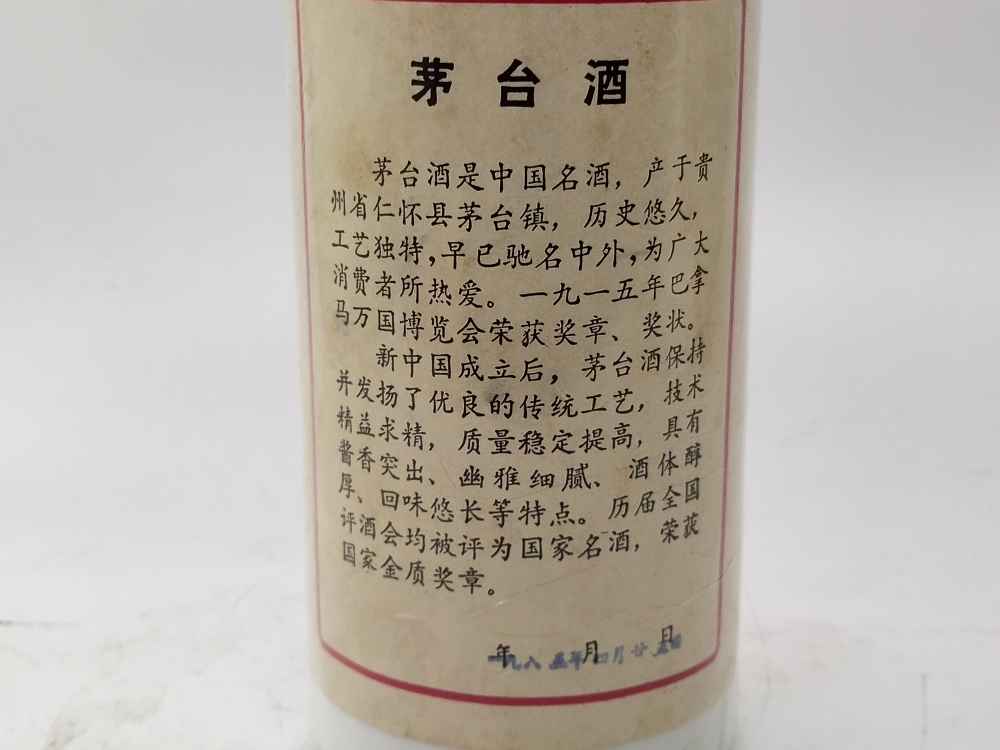 茅台酒
茅台酒是中国名酒，产于贵
州省仁怀县茅台镇，历史悠久，
工艺独特，早已驰名中外，为广大
消费者所热爱。一九一五年巴拿
马万国博览会荣获奖章、奖状。
新中国成立后，茅台酒保持
并发扬了优良的传统工艺，技术
精益求精，质量稳定提高，具有
酱香突出、幽雅细腻、酒体醇
厚、回味悠长等特点。历届全国
评酒会均被评为国家名酒，荣获
国家金质奖章。
年月日
一九八五年四月廿五日